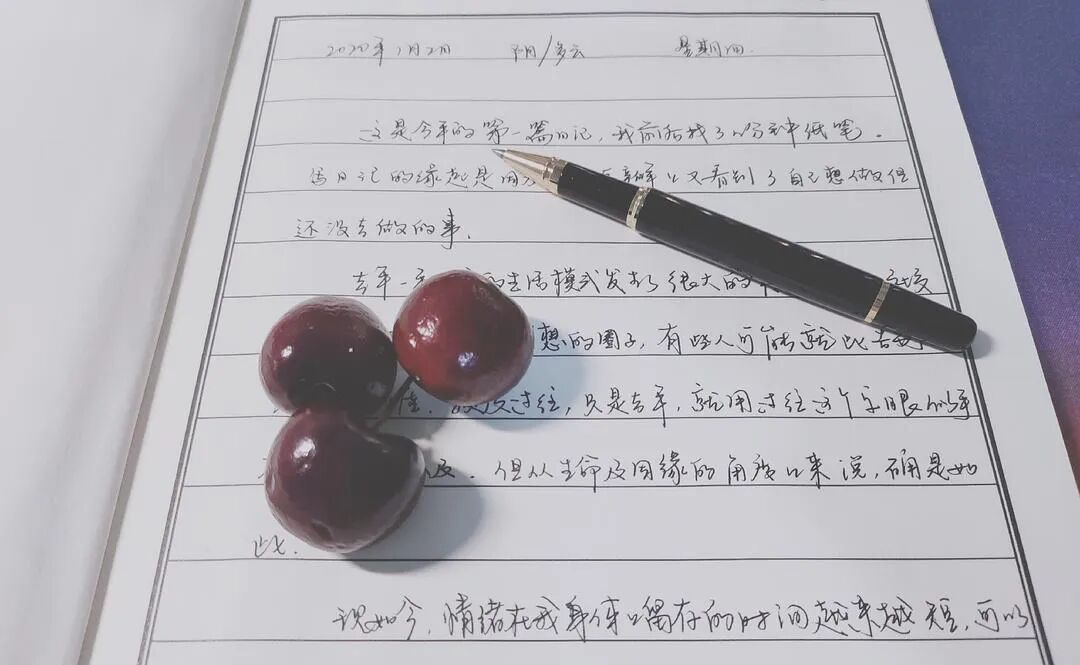 2020年1月2月 阴/多云 星期四.
这是今年的第一篇日记，我前后找了以分钟纸笔.
写日记的缘起是因为 上又看到了自己想做又但
还没去做的事.
去年一 的生活模式发生了很大的
想的圈子，有些人可能就此告别
过往，只是去年，就用过往这个字眼似乎
但从生命及因缘的角度上来说，确是如
此.
现如今，情绪在我身体上留存的时间越来越短，可以